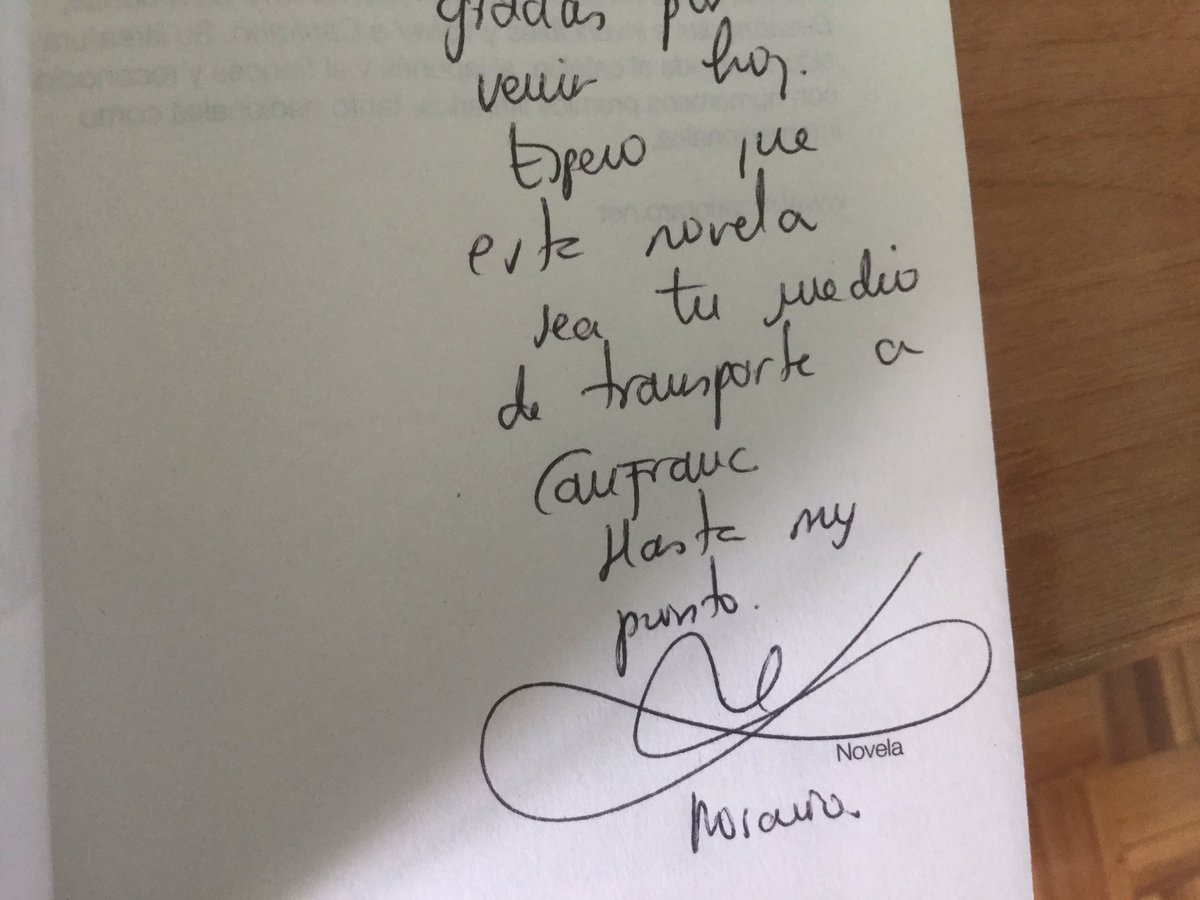 gracias por
venir hoy.
Espero que
esta novela
sea tu medio
de transporte a
Canfranc
Hasta muy
pronto.
Novela
Rosario.